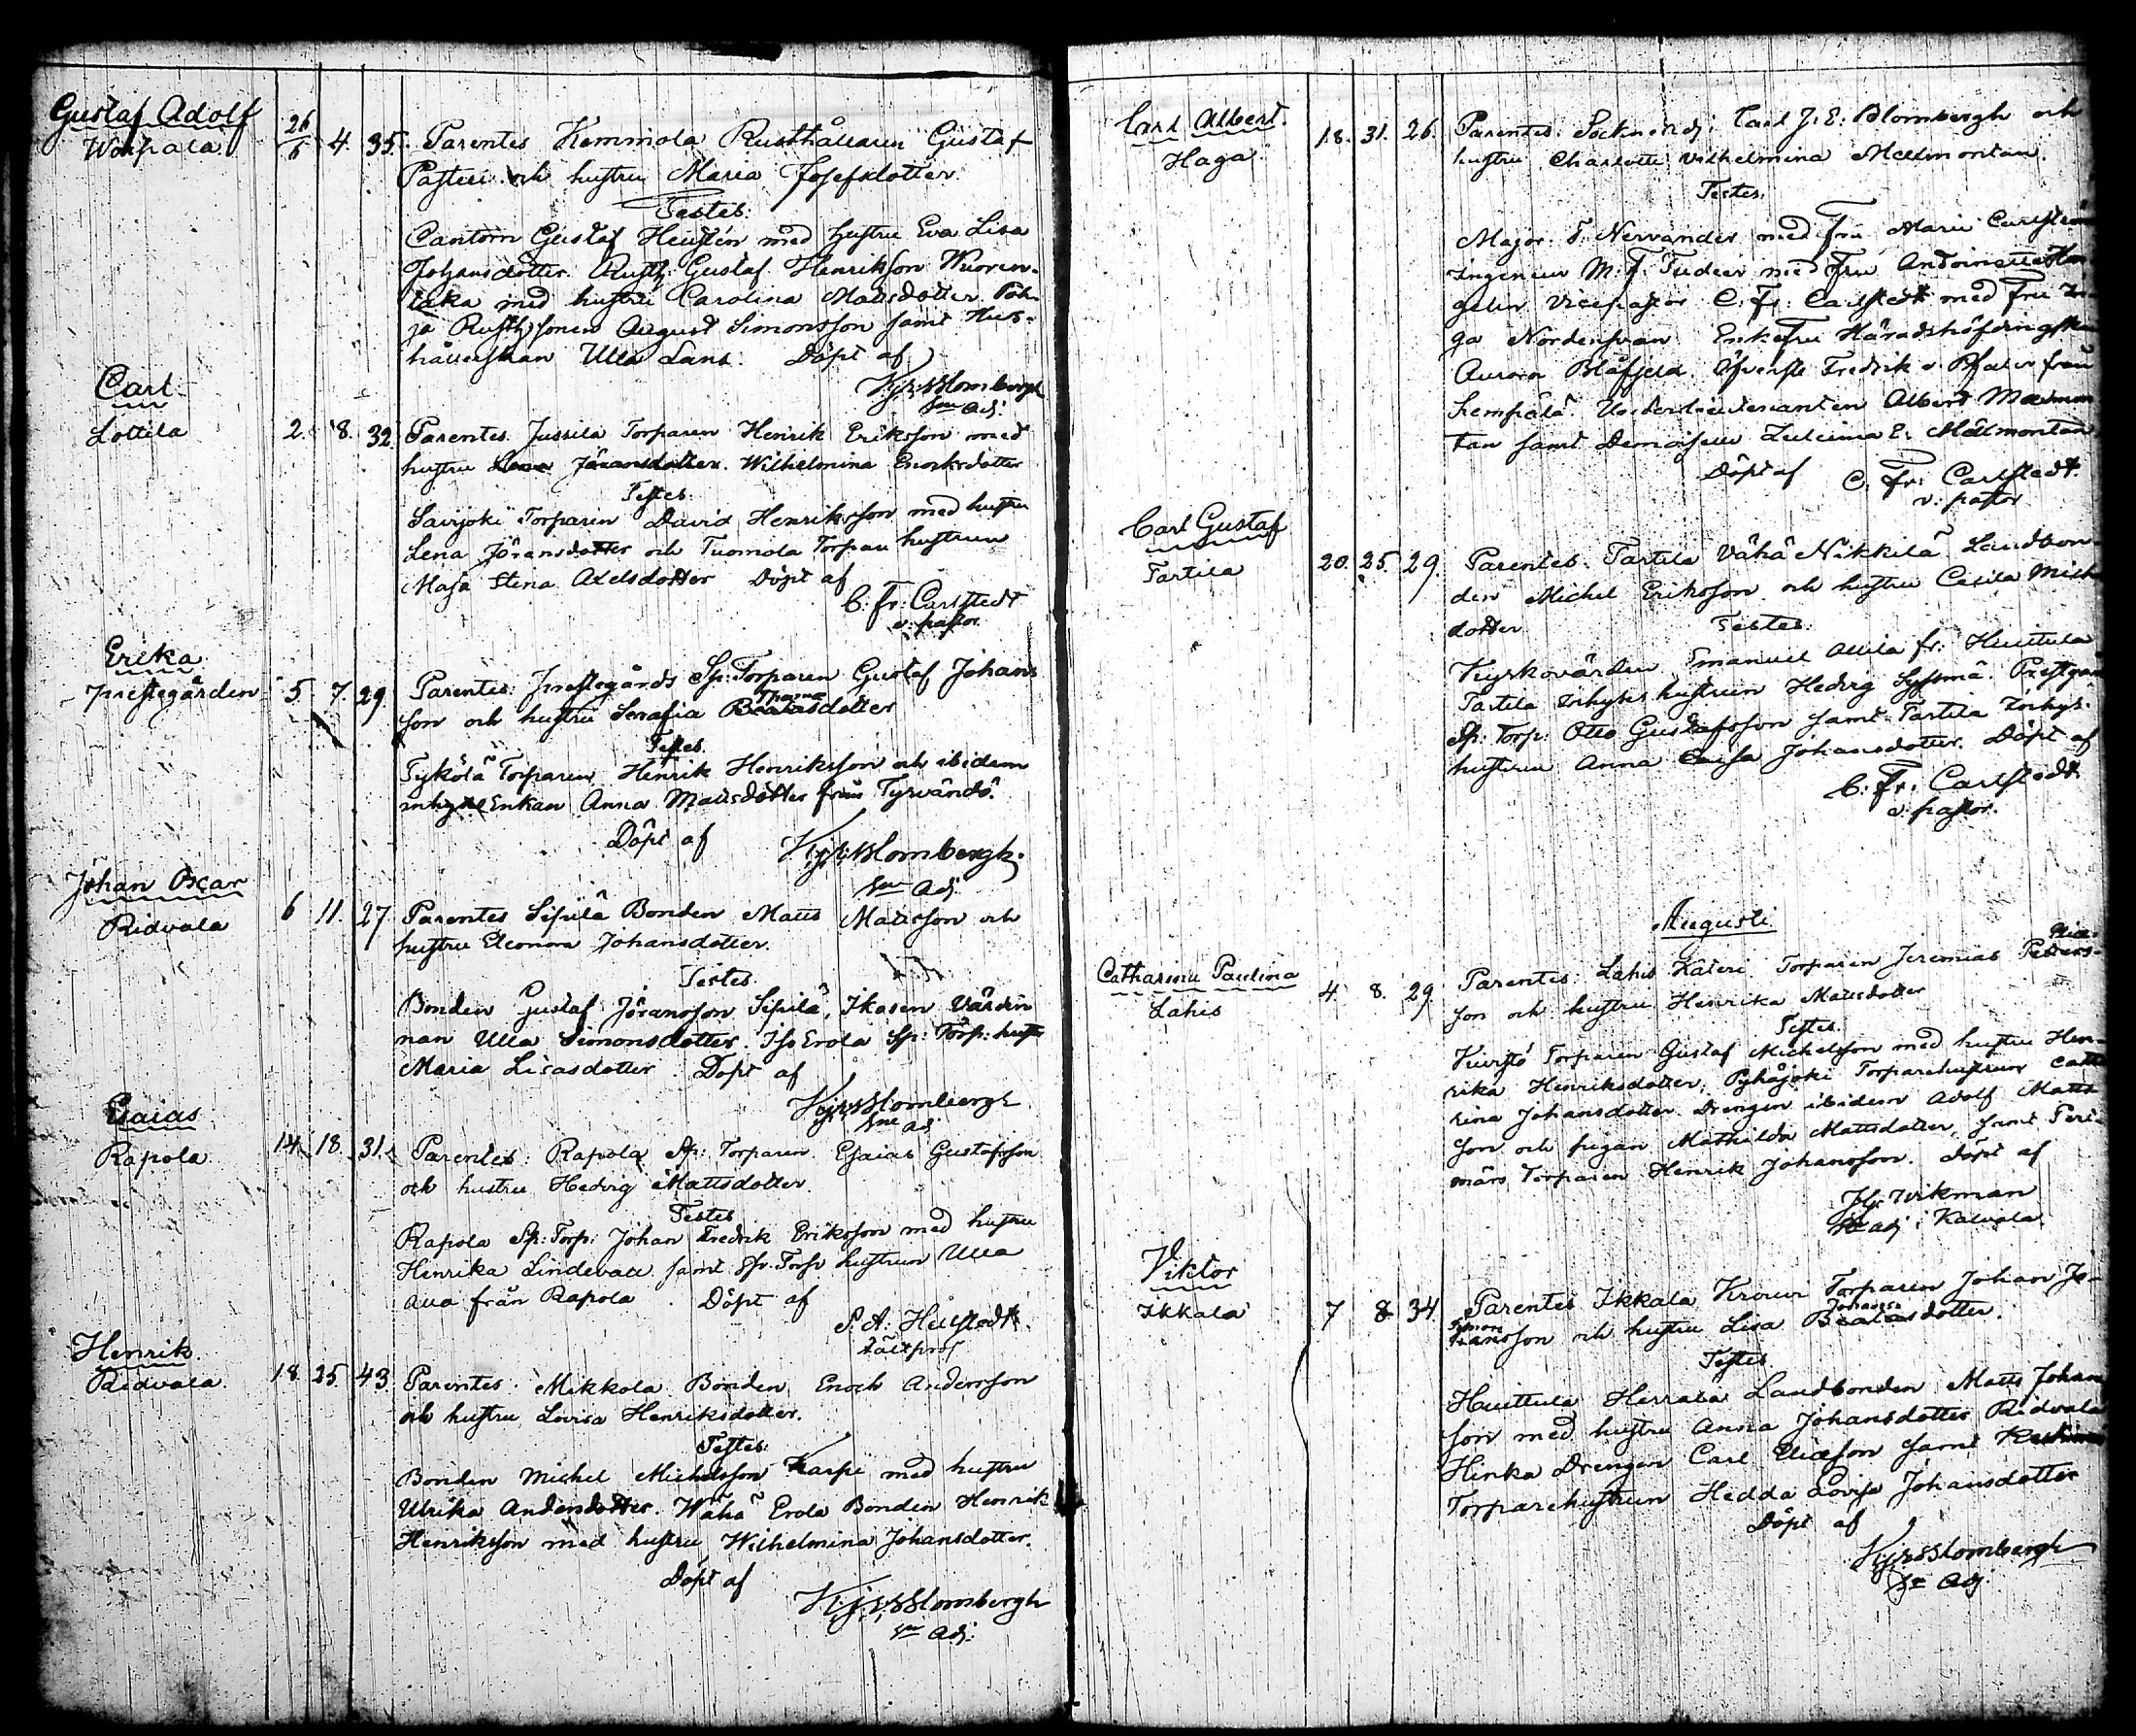 Gustaf Adolf
Woipala 26/6 4. 35. Parentes Kemmola Rusthållaren Gustaf
och hustru Maria Josefsdotter.
Testes:
Cantorn Gustaf Heusten med hustru Eva Lisa
Johansdotter. Rusth: Gustaf Henriksson Wuoren-
taka med hustru Carolina Mattsdotter. Poh-
ja Rusth: sonen August Simonsson samt Hus-
hållerskan Ulla Lans. Döpt af
K:J:E:Blombergh
v. Adj:
Carl
Lottila 2. 8. 32 Parentes Jussila Torparen Henrik Eriksson med
hustru Lena Göransdotter. Wilhelmina Enoksdotter
Testes
Savijoki Torparen David Henriksson med hustru
Lena Göransdotter och Tuomola Torpare hustrun
Maja Stina Axelsdotter Döpt af
C. Fr: Carlstedt
v. pastor.
Erika
prestegården 5. 7. 29 Parentes: prestegårds Sp: Torparen Gustaf Johans
son och hustru Serafia Beatasdotter
Testes
Tykölä Torparen Henrik Henriksson och ibidem
inhyses Enkan Anna Mattsdotter från Tyrvändö.
Döpt af K:J:E:Blombergh.
v. Adj
Johan Oscar
Ridvala 6 11. 27 Parentes Sipilä Bonden Matts Mattsson och
hustru Eleonora Johansdotter.
Testes
Bonden Gustaf Göransson Sipilä, Ikasen Värdin
nan Ulla Simonsdotter. Iso Erola Sp: Torp: hustr
Maria Lisasdotter. Döpt af
K:J:E:Blombergh
v. adj
Esaias
Rapola 14. 18. 31. Parentes: Rapola Sp: Torparen Esaias Gustafsson
och hustru Hedvig Mattsdotter.
Testes
Rapola Sp: Torp: Johan Fredrik Eriksson med hustru
Henrika Lindevall samt Sp: Torp hustrun Ulla
från Rapola. Döpt af
S. A: Hellstedt
Fältpros
Henrik
Ridvala 18. 25. 43 Parentes: Mikkola Bonden Enoch Andersson
och hustru Lovisa Henriksdotter.
Testes:
Bonden Michel Michelsson Karpi med hustru
Ulrika Andersdotter. Wähä Erola Bonden Henrik
Henriksson med hustru Wilhelmina Johansdotter.
Döpt af
K:J:E:Blombergh
v. Adj:
Carl Albert.
Haga 18. 31. 26. Parentes: Sockne adj: Carl J: E: Blombergh och
hustru Charlotta Vilhelmina Malmontan.
Testes.
Major F. Nervander med Fru Marie
Ingenieur M. F. Tudeer med Fru Antoinette
Vicepastor C. Fr: Carlstedt med Fru In-
ga Nordensvan Enkefru Häradshöfdingskan
Aurora Blåfjeld Öfverste Fredrik v. Pfaler från
Lempälä. Underlieutenanten Albert Malmon
tan samt Demoiselle Zuleima E: Malmontan
Döpt af C. Fr: Carlstedt.
v. pastor
Carl Gustaf
Tartila 20. 25. 29. Parentes. Tartila Vähä Nikkilä Landbon-
den Michel Eriksson och hustru Cesilia Mich
dotter Testes.
Kyrkovärden Emanuel Allila fr: Huittula
Tartila inhyses hustrun Hedvig Syssmä. Prestgår
Sp: Torp: Otto Gustafsson samt Tartila Inhys:
hustrun Anna Caisa Johansdotter. Döpt af
C. Fr. Carlstedt
v. pastor.
Augusti
Catharina Paulina
Lahis 4. 8. 29 Parentes: Lahis Kateri Torparen Jeremias Peters-
son och hustru Henrika Mattsdotter
Testes
Torparen Gustaf Michelsson med hustru Hen-
rika Henriksdotter, Pyhäjoki Torparehustrun Catha
rina Johansdotter Drengen ibidem Adolf Matts
son och pigan Mathilda Mattsdotter, samt Peri-
Torparen Henrik Johansson. Döpt af
Wikman
adj i Kalvola.
Viktor
Ikkala 7 8 34 Parentes Ikkala Torparen Johan Jo-
hansson och hustru Lisa Beatasdotter.
Testes
Huittula Herrala Landbonden Matts Johans
son med hustru Anna Johansdotter Ridvala
Hinka Drengen Carl Eliasson samt
Torparehustrun Hedda Lovisa Johansdotter
Döpt af
K:J:E:Blombergh
v. Adj.